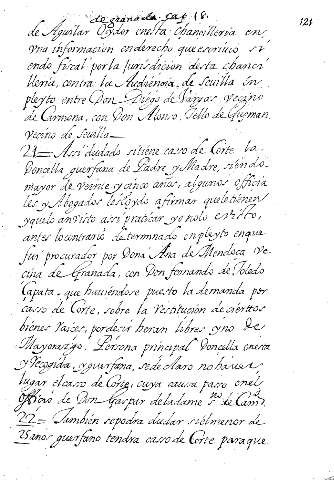 de granada. Cap. 18.
121
de Aguilar Oydor enesta chancilleria en
vna informacion enderecho que escriuio si
endo fiscal por la Jurisdicion desta chanci
lleria, contra la Audiencia, de Sevilla en
pleyto entre Don Diego de Vargas vecino
de Carmona, con Don Alonso Tello de Guzman,
vecino de Sevilla
21 = Assi dudado si tiene caso de Corte la
Doncella guerfana de Padre, y Madre, siendo
mayor de veinte y cinco años, algunos officia
les y Abogados les oydo afirmar que lo tienen
y que lo an visto assi praticar, yo no lo e visto,
antes lo contrario determinado en pleyto en que
fui procurador por Dona Ana de Mendoca ve
cina de Granada, con Don fernando de Toledo
Capata, que haviendose puesto la demanda por
caso de Corte, sobre la Restitucion de ciertos
bienes raices, por decir heran libres, y no de
Mayorazgo. Persona principal Doncella onesta
y Recogida, y guerfana, se declaro no haver
lugar el caso de Corte, cuya causa paso en el
officio de Don Gaspar
22 = Tambien se podra dudar si el menor de
25 anos guerfano tendra caso de Corte para que